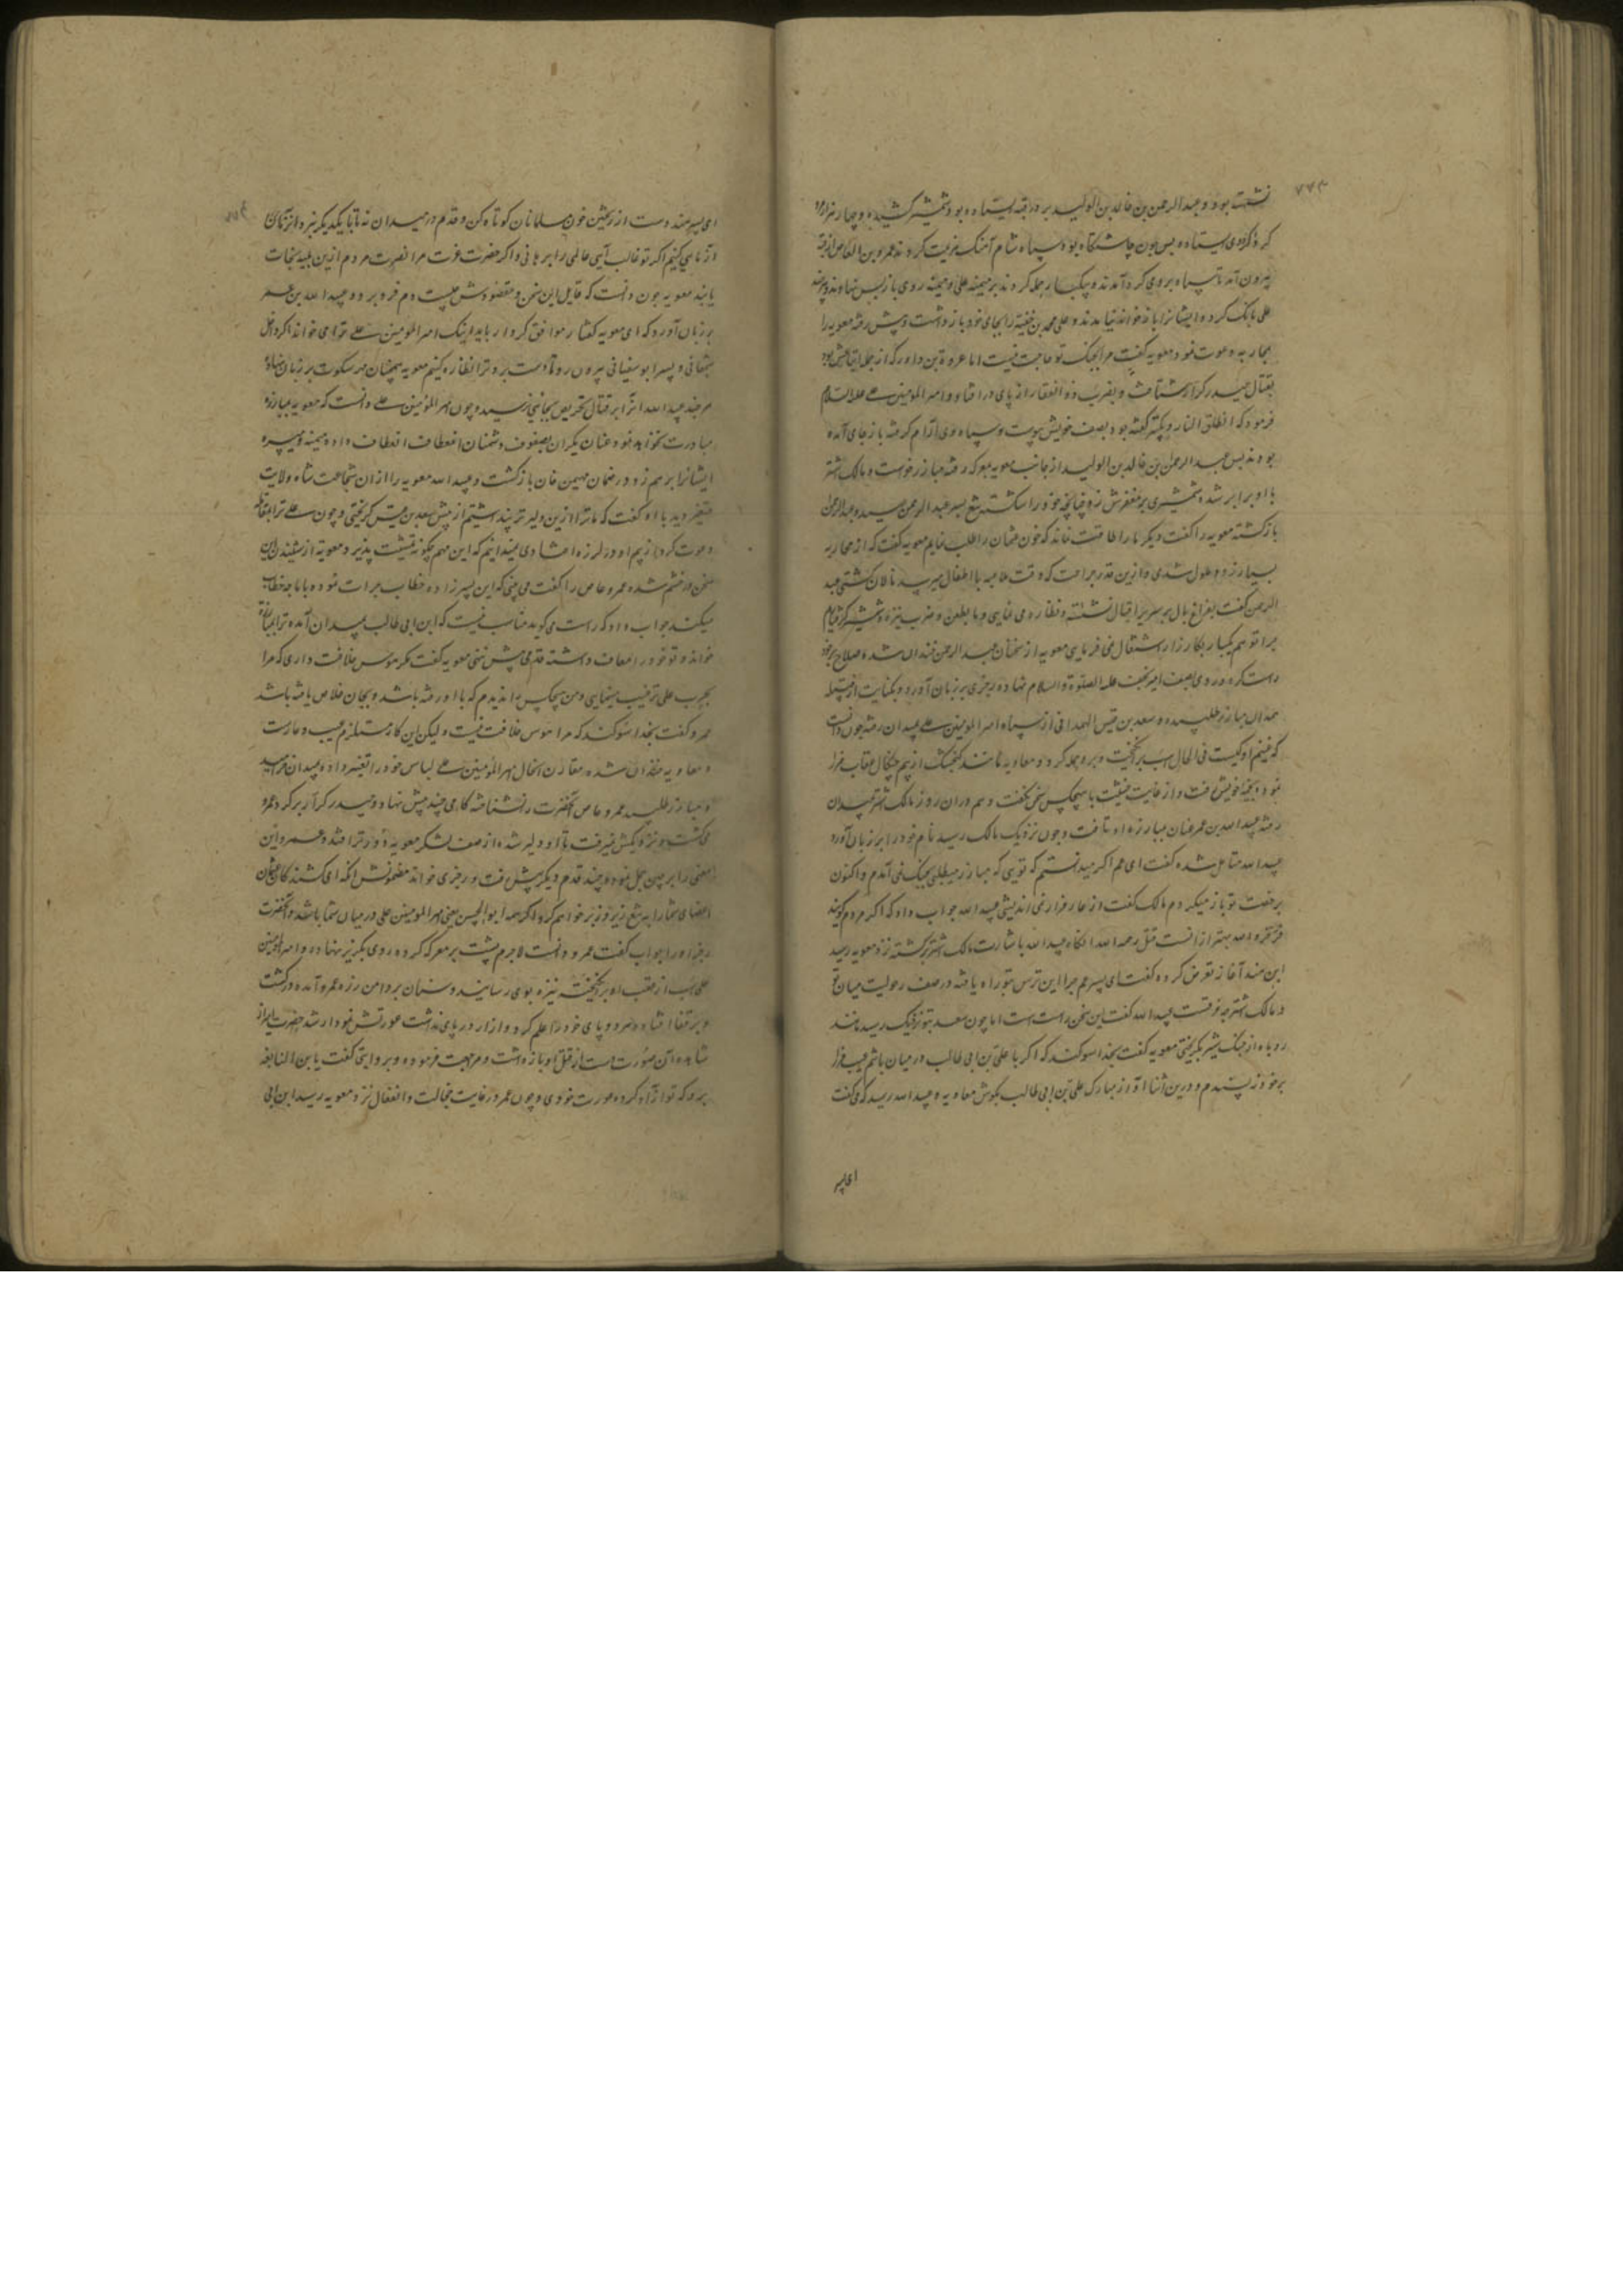 ۷۷۳
نشسته بود و عبد الرحمن بن خالد بن الولید بر در قبه ایستاده بود و شمشیر کشیده و چهار هزار مرد
کرد وی ایستاده پس چون چاشتگاه بود سپاه شام آهنگ هزیمت کردند عمرو بن العاص از قبه
بیرون آمد تا سپاه بروی کرد آمدند و یکبار حمله کردند بر میمنه علی و میمنه روی بازپس نهادند
علی بانک کرد و ایشانرا باز خواند نیامدند و علی محمد بن حنفیه را بجای خود باز داشت و پیش رفته معویه را
بمحاربه دعوت نمود معویه گفت مرا بجنک تو حاجت نیست اما عروة بن داود که از جمله
بقتال حیدر کرار شتافت و بضرب ذو الفقار از پای در افتاد و امیر المومنین علی علیه السلام
فرمود که انطلق النار و بصف خویش پیوست و سپاه وی آرام گرفته باز جای آمده
بودند پس عبد الرحمن بن خالد بن الولید از جانب معویه بمعرکه رفته مبارز خواست و مالک اشتر
با او برابر شد و شمشیری بر مغفرش زد چنانچه خود را شکسته تیغ بسر عبد الرحمن رسید و عبد الرحمن
بازگشته معویه را گفت دیگر ما را طاقت نماند که خون عثمان را طلب نمایم معویه گفت که از محاربه
بسیار زود ملول شدی و ازین قدر جراحت که وقت ملاعبه با اطفال میرسد نالان گشتی عبد
الرحمن گفت بفراغ بال بر سریر اقبال نشسته و نظاره می نمایی و ما بطعن و ضرب نیزه و شمشیر گرفتاریم
چرا تو هم یکبار بکارزار اشتغال نمی فرمایی معویه از سخنان عبد الرحمن خندان شده صلاح بر خود
راست کرد و روی بصف امیر نجف علیه الصلوة و السلام نهاده رجزی بر زبان آورد و بکنایت از قبیله
همدان مبارز طلبیده سعد بن قیس الهمدانی از سپاه امیر المومنین علی بمیدان رفته چون دانست
که خصم او کیست فی الحال اسب بر انگیخت و برو حمله کرد و معاویه مانند گنجشک از بیم چنگال عقاب فرار
نموده بخیمه خویش رفت و از غایت خشیت با هیچکس سخن نگفت و هم در آن روز مالک اشتر بمیدان
رفته عبید الله بن عمر عنان بمبارزه او تافت و چون نزدیک مالک رسید نام خود را بر زبان آورد
عبید الله متامل شده گفت ای عم اگر میدانستم که تویی که مبارز میطلبی بجنک نمی آمدم و اکنون
برخصت تو باز میگردم مالک گفت و از عار فرار نمی اندیشی عبید الله جواب داد که اگر مردم گویند
فر فخره الله بهتر از آنست قتل رحمه الله آنگاه عبید الله باشارت مالک اشتر برگشته نزد معویه رسید
ابن هند آغاز تعرض کرده گفت ای پسر عم چرا این ترس بتو راه یافته در صف رجولیت میان تو
و مالک اشتر چه فرقست عبید الله گفت این سخن راست است اما چون سعد بتو نزدیک رسید مانند
روباه از جنک شیر بگریختی معویه گفت بخدا سوگند که اگر با علی بن ابی طالب در میان باشم عیب فرار
بر خود نپسندم و درین اثنا آواز مبارک علی بن ابی طالب بگوش معاویه و عبید الله رسید که می گفت
ای پسر
۷۷۴
ای پسر هند دست از ریختن خون مسلمانان کوتاه کن و قدم در میدان نه تا با یکدیگر نبرد
آزمایی کنیم اگر تو غالب آیی عالمی را برهانی و اگر حضرت عزت مرا نصرت مردم ازین بلیه نجات
یابند معویه چون دانست که قایل این سخن و مقصودش چیست دم فرو برد و عبید الله بن عمر
بر زبان آورد که ای معویه گفتار موافق کردار باید اینک امیر المومنین علی ترا می خواند اگر داخل
شجعانی و پسر ابو سفیانی بیرون رو تا دست برد ترا نظاره کنیم معویه همچنان مهر سکوت بر زبان نهاده
هر چند عبید الله او را بر قتال تحریص بجایی نرسید و چون امیر المومنین علی دانست که معویه بمبارزه
مبادرت نخواهد نمود عنان یکران بصفوف دشمنان انعطاف داده میمنه و میسره
ایشانرا بر هم زد و در ضمان مهیمن خان بازگشت و عبید الله معویه را از آن شجاعت شاه ولایت
متغیر دید با او گفت که ما ترا ازین دلیرتر پنداشتیم از پیش سعد بن قیس گریختی و چون علی ترا بمقاتله
دعوت کرد از بیم او در لرزه افتادی نمیدانیم که این مهم چگونه تمشیت پذیرد معویه از شنیدن این
سخن در خشم شده عمرو عاص را گفت می بینی که این پسر زاده خطاب جرات نموده با ما چه خطاب
میکند جواب داد که راست می گوید مناسب نیست که ابن ابی طالب بمیدان آمده ترا بمبارزه
خواند و تو خود را معاف داشته قدمی پیش ننهی معویه گفت مگر هوس خلافت داری که مرا
بحرب علی ترغیب مینمایی و من هیچکس را ندیدم که با او رفته باشد و بجان خلاص یافته باشد
عمرو گفت بخدا سوگند که مرا هوس خلافت نیست و لیکن این کار مستلزم عیب و عارست
و معاویه خندان شده مقارن آن حال امیر المومنین علی لباس خود را تغییر داده بمیدان خرامید
و مبارز طلبید عمرو عاص آنحضرت را نشناخته گامی چند پیش نهاد و حیدر کرار بر گرد عمرو
می گشت و نزدیکش نمیرفت تا او دلیر شده از صف لشکر معویه دورتر افتد و عمرو این
معنی را بر جبن حمل نموده چند قدم دیگر پیش رفت و رجزی خواند مضمونش آنکه ای کشندگان عثمان
اعضای شما را به تیغ زیر و زبر خواهم کرد اگر چه ابو الحسن یعنی امیر المومنین علی در میان شما باشد و آنحضرت
رجز او را جواب گفت عمرو دانست لاجرم پشت بر معرکه کرده روی بگریز نهاد و امیر المومنین
علی اسب از عقب او بر انگیخته نیزه بوی رسانید و سنان بر دامن زره عمرو آمده درگشت
و بر قفا افتاد و هر دو پای خود را علم کرد و ازار در پای نداشت عورتش نمودار شد حضرت
مشاهده آن صورت دست از قتل او باز داشت و مراجعت فرموده و بروایتی گفت یا بن النابغه
برو که تو آزاد کرده عورت خودی و چون عمرو در غایت خجالت و انفعال نزد معویه رسید ابن ابی